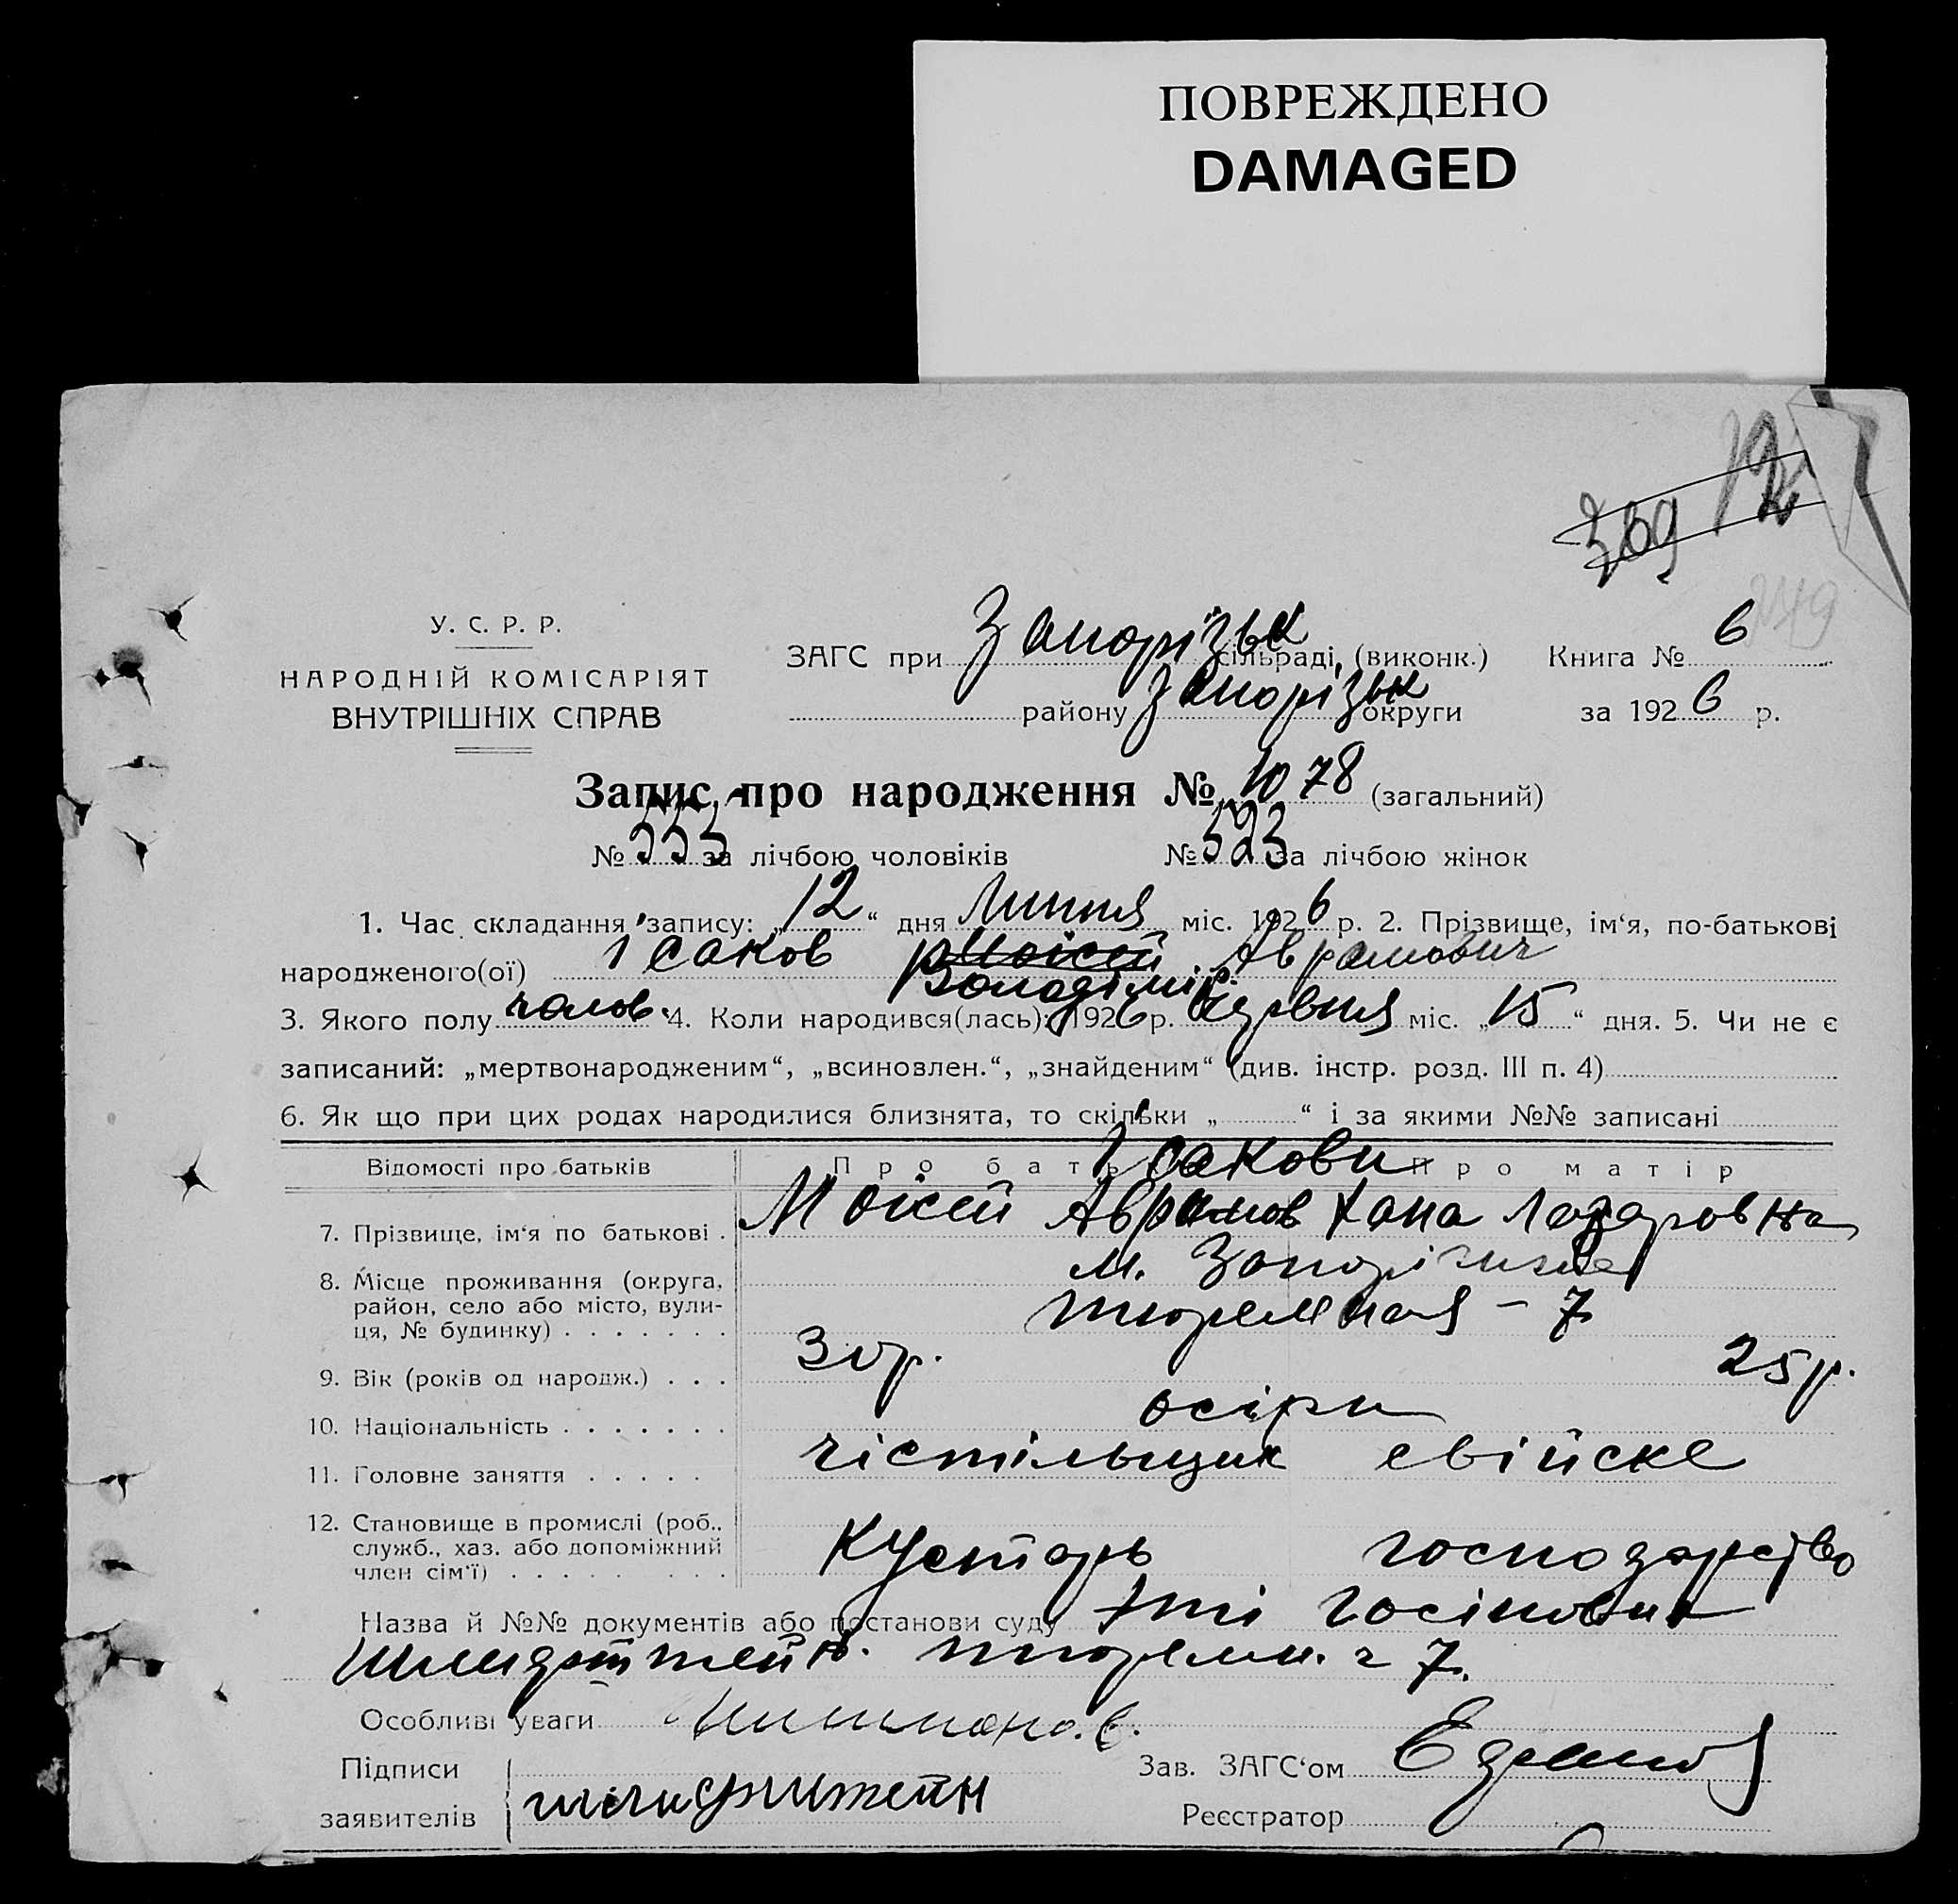 ПОВРЕЖДЕНО
DAMAGED
12
309
249
У. С. Р. Р.
НАРОДНІЙ КОМІСАРІЯТ
ВНУТРІШНІХ СПРАВ
ЗАГС при Запорізьк сільраді, (виконк.) Книга № 6
району Запорізьк округи за 1926 р.
Запис про народження № 1078 (загальний)
№ 555 за лічбою чоловіків № 523 за лічбою жінок
1. Час складання запису: „12“ дня Липня міс. 1926 р. 2. Прізвище, ім‘я, по-батькові
народженого(ої) Ісаков Моісей Аврамович
Володімір
3. Якого полу чолов. 4. Коли народився(лась): 1926 р. Червня міс. „15“ дня. 5. Чи не є
записаний: „мертвонародженим“, „всиновлен.“, „знайденим“ (див. інстр. розд. III п. 4)
6. Як що при цих родах народилися близнята, то скільки „ “ і за якими №№ записані
Відомості про батьків Про батька Про матір
Ісакови
7. Прізвище, ім‘я по батькові . Моісей Аврамов Хана Лазаровна
8. Місце проживання (округа, м. Запоріжжє
район, село або місто, вули-
ця, № будинку) . . . . . . . тюремная - 7
9. Вік (років од народж.) . . . 30 р. 25 р.
10. Національність . . . . . . .
11. Головне заняття . . . . . чістільщик
12. Становище в промислі (роб.,
служб., хаз. або допоміжний
член сім‘ї) . . . . . . . . Кустарь господарство
Назва й №№ документів або постанови суду
тюремн. 7.
Особливі уваги
Підписи
заявителів
Зав. ЗАГС‘ом
Реєстратор